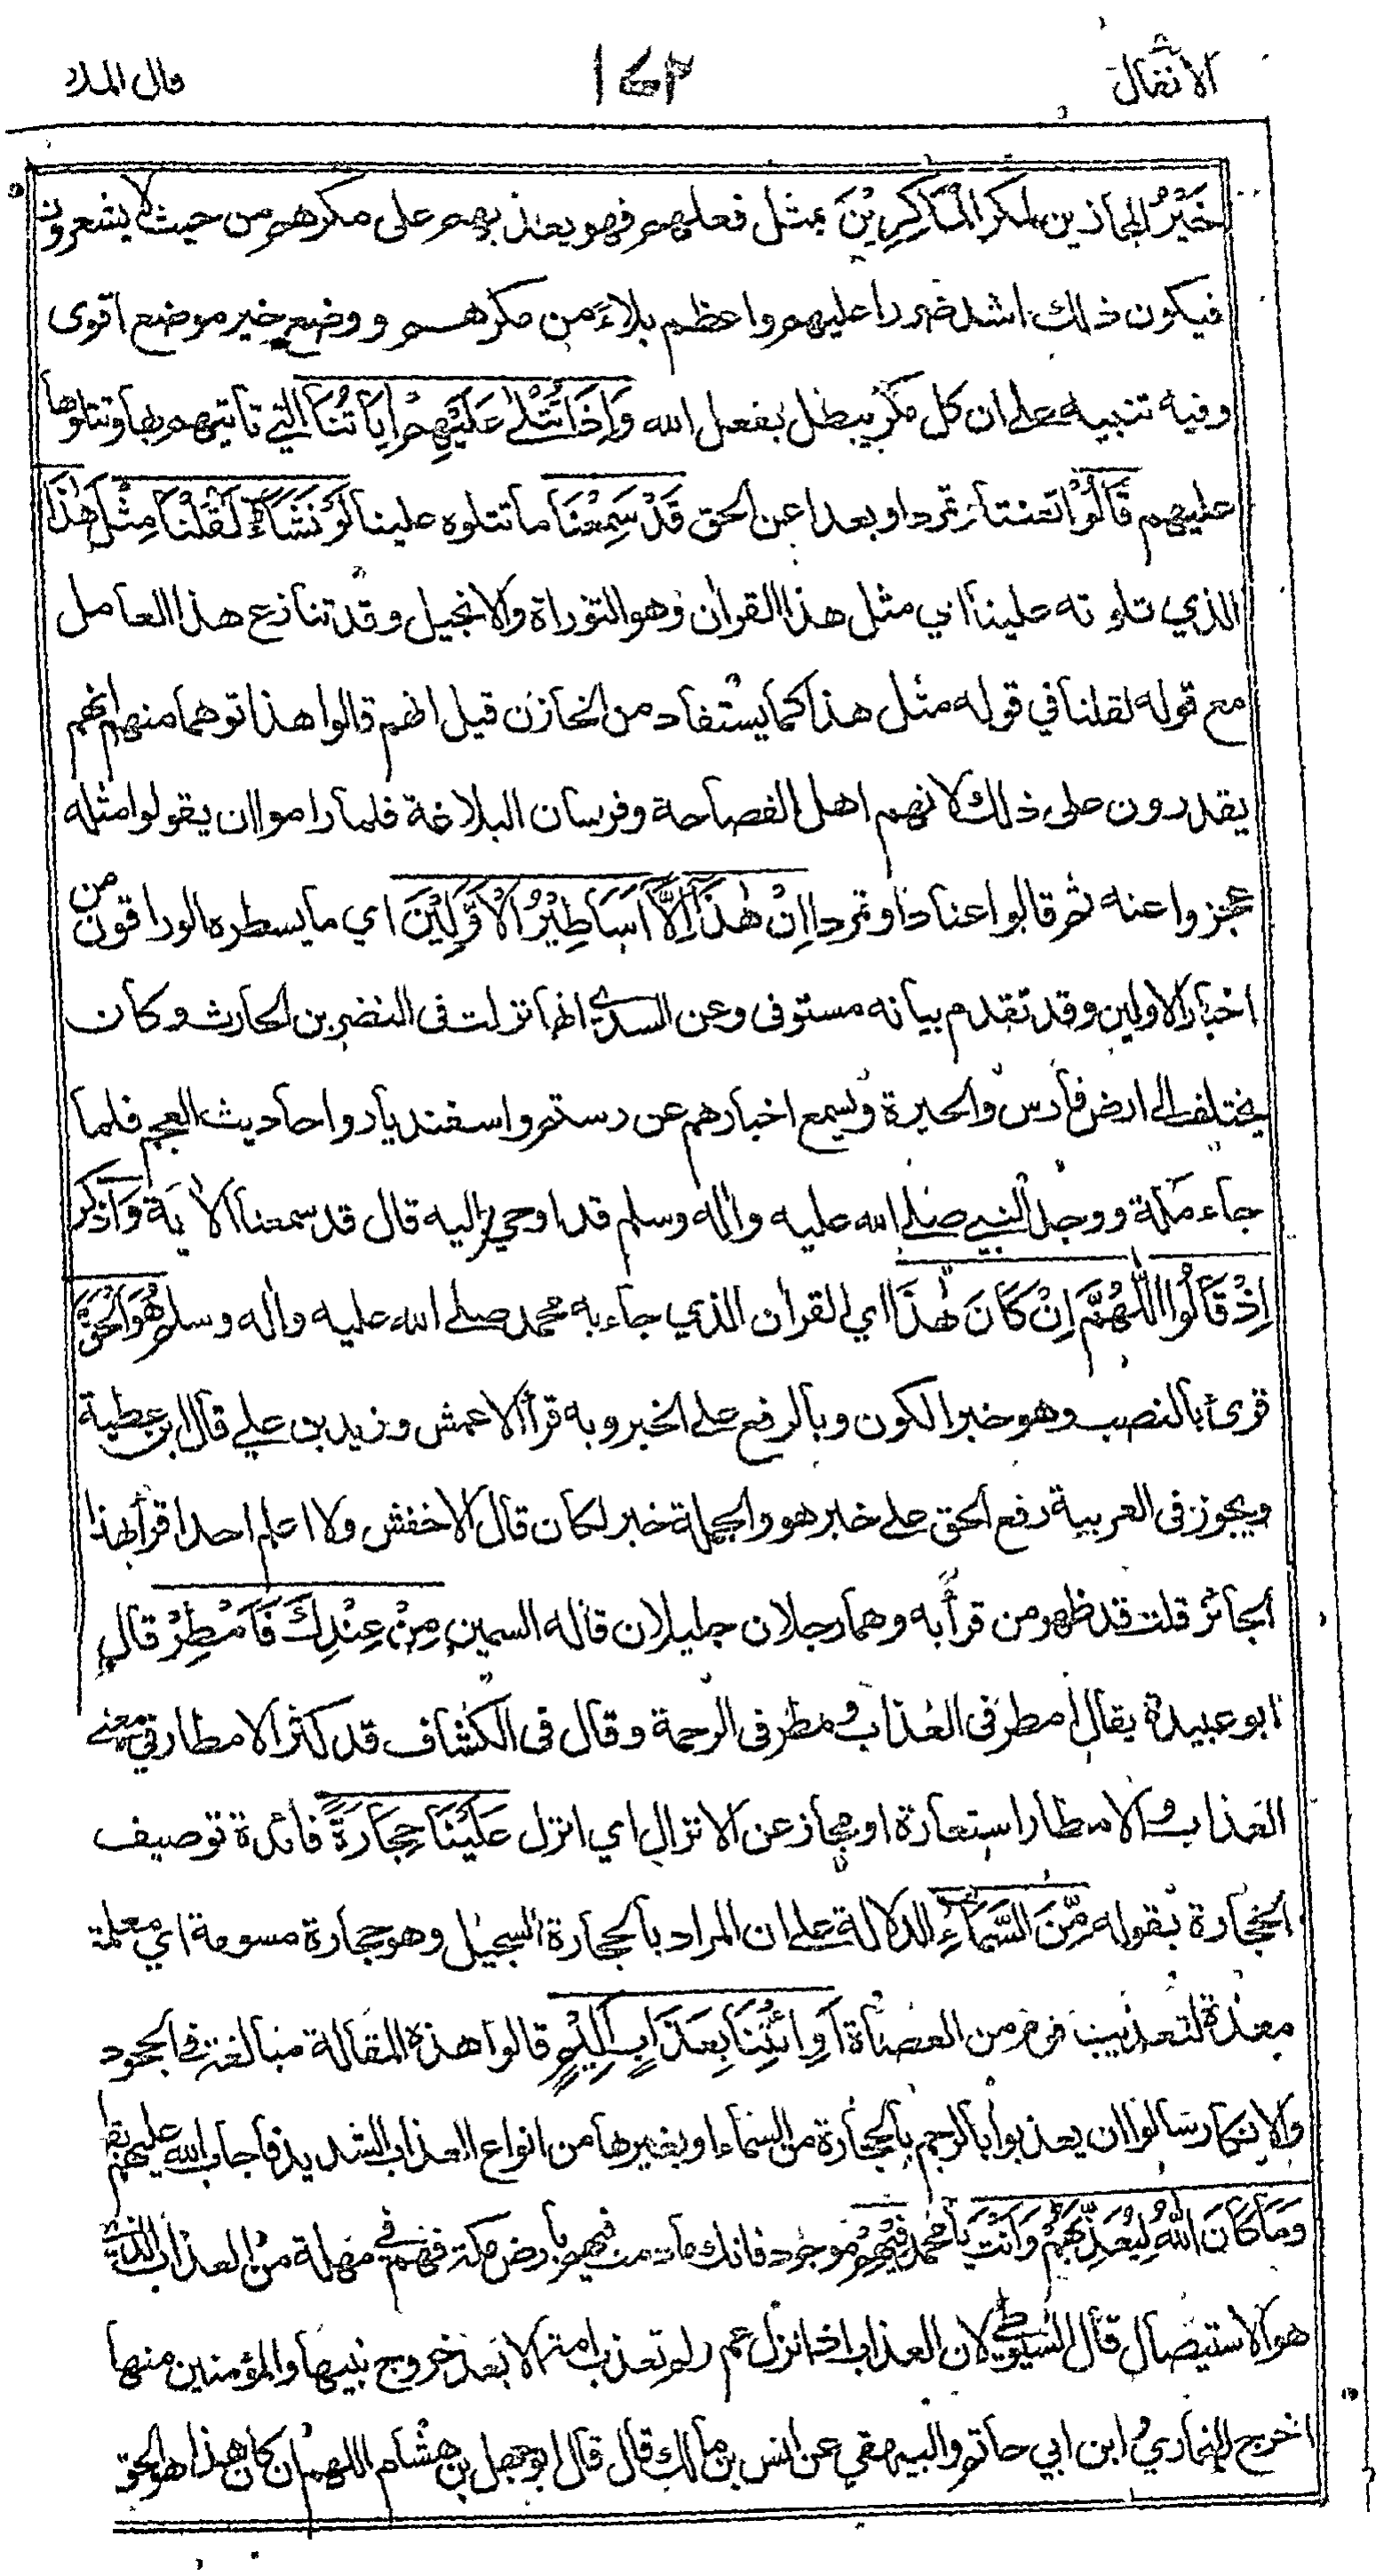 الأنفال ١٦٢ قال الملأ
خَيْرُ المجازين لمكر الْمَاكِرِيْنَ بمثل فعلهم فهو يعذبهم على مكرهم من حيث لا يشعرون
فيكون ذلك اشد ضررا عليهم واعظم بلاءً من مكرهم ووضع خير موضع اقوى
وفيه تنبيه على ان كل مكر يبطل بفعل الله وَاِذَا تُتْلٰى عَلَيْهِمْ اٰيَاتُنَا التي تأتيهم بها وتتلوها
عليهم قَالُوْا تعنتا وتمردا وبعدا عن الحق قَدْ سَمِعْنَا ما تتلوه علينا لَوْ نَشَآءُ لَقُلْنَا مِثْلَ هٰذَا
الذي تلوته علينا اي مثل هذا القرآن وهو التوراة والانجيل وقد تنازع هذا العامل
مع قوله لقلنا في قوله مثل هذا كما يستفاد من الخازن قيل انهم قالوا هذا توهما منهم انهم
يقدرون على ذلك لانهم اهل الفصاحة وفرسان البلاغة فلما راموا ان يقولوا مثله
عجزوا عنه ثم قالوا عنادا وتمردا اِنْ هٰذَآ اِلَّآ اَسَاطِيْرُ الْاَوَّلِيْنَ اي ما يسطره الوراقون من
اخبار الاولين وقد تقدم بيانه مستوفى وعن السدي انها نزلت في النضر بن الحارث وكان
يختلف الى ارض فارس والحيرة ويسمع اخبارهم عن رستم واسفنديار واحاديث العجم فلما
جاء مكة ووجد النبي صلى الله عليه واٰله وسلم قد اوحي اليه قال قد سمعنا الاٰية وَاذكر
اِذْ قَالُوا اللّٰهُمَّ اِنْ كَانَ هٰذَا اي القرآن الذي جاء به محمد صلى الله عليه واٰله وسلم هُوَ الْحَقَّ
قرئ بالنصب وهو خبر الكون وبالرفع على الخبر وبه قرأ الاعمش وزيد بن علي قال ابن عطية
ويجوز في العربية رفع الحق على خبر هو والجملة خبر لكان قال الاخفش ولا اعلم احدا قرأ بهذا
الجائز قلت قد ظهر من قرأ به وهما رجلان جليلان قاله السمين مِنْ عِنْدِكَ فَاَمْطِرْ قال
ابو عبيدة يقال امطر في العذاب ومطر في الرحمة وقال في الكشاف قد كثر الامطار في معنى
العذاب والامطار استعارة او مجاز عن الانزال اي انزل عَلَيْنَا حِجَارَةً فائدة توصيف
الحجارة بقوله مِّنَ السَّمَآءِ الدلالة على ان المراد بالحجارة السجيل وهو حجارة مسومة اي معلمة
معدة لتعذيب قوم من العصاة اَوِ ائْتِنَا بِعَذَابٍ اَلِيْمٍ قالوا هذه المقالة مبالغة في الجحود
والانكار سالوا ان يعذبوا بالرجم بالحجارة من السماء او بغيرها من انواع العذاب الشديد فاجاب الله عليهم بقوله
وَمَا كَانَ اللّٰهُ لِيُعَذِّبَهُمْ وَاَنْتَ يا محمد فِيْهِمْ موجود فانك ما دمت فيهم بارض مكة فهم في مهلة من العذاب الذي
هو الاستيصال قال السيوطي لان العذاب اذا نزل عم ولم تعذب امة الا بعد خروج نبيها والمؤمنين منها
اخرج البخاري وابن ابي حاتم والبيهقي عن انس بن مالك قال قال ابو جهل بن هشام اللهم ان كان هذا هو الحق